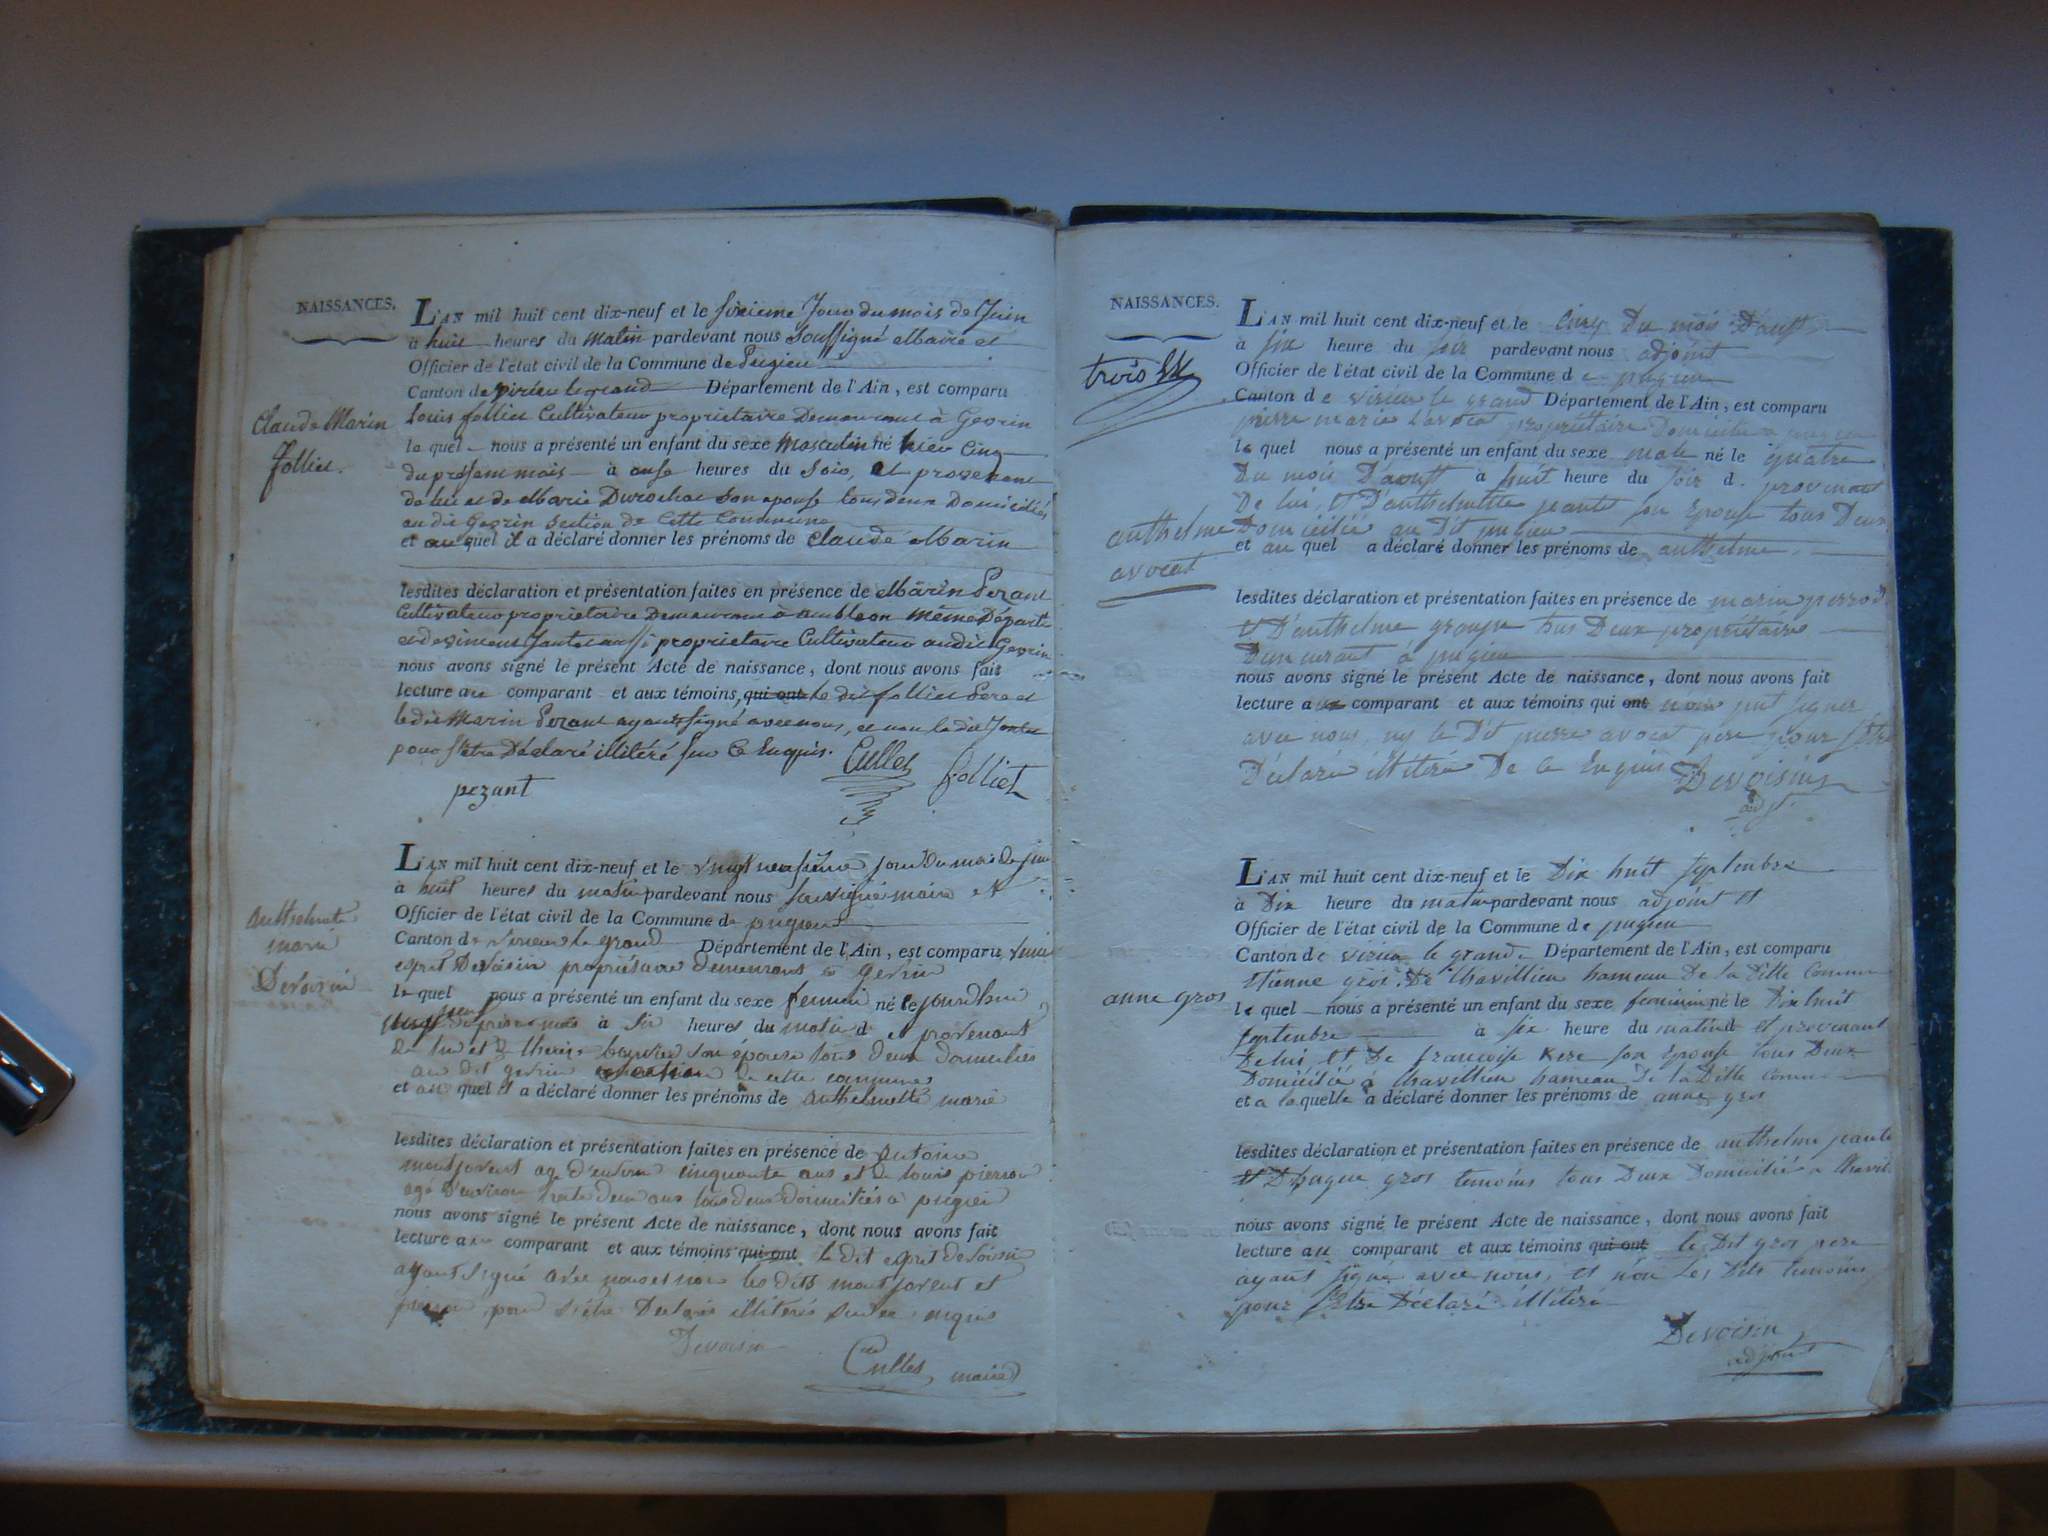 NAISSANCES.
L'AN mil huit cent dix-neuf et le sixieme Jour du mois de Juin
à huit heures du Matin pardevant nous Soussigné Maire et
Officier de l'état civil de la Commune de Pugieu
Canton de virieu le grand Département de l'Ain, est comparu
Claude Marin
Folliet.
Louis folliet Cultivateur proprietaire Demeurant à Gevrin
le quel nous a présenté un enfant du sexe Masculin né hier Cinq
du present mois à onse heures du Soir, et provenant
de lui et de Marie Durochat son epouse tous deux Domiciliés
au dit Gevrin Section de Cette Commune
et au quel il a déclaré donner les prénoms de Claude Marin
lesdites déclaration et présentation faites en présence de Marin Pezant
Cultivateur proprietaire Demeurant à ambleon même Départt
et de vincent Jantet aussi proprietaire Cultivateur audit Gevrin
nous avons signé le présent Acte de naissance, dont nous avons fait
lecture au comparant et aux témoins, qui ont le dit folliet Pere et
ledit Marin Pezant ayant signé avec nous, et non le dit Jantet
pour s'être Déclaré illitéré sur Ce Enquis.
Cullet
folliet
pezant
L'AN mil huit cent dix-neuf et le vingt neufième jour du mois de juin
à huit heures du matin pardevant nous soussigné maire et
Officier de l'état civil de la Commune de pugieu
Canton de virieu le grand Département de l'Ain, est comparu
anthelmette
marie
Devoisin
esprit Devoisin propriétaire demeurant à gevrin
le quel nous a présenté un enfant du sexe feminin né le jourdhui
du présent mois à six heures du matin d et provenant
de lui et de son épouse tous deux domiciliés
au dit gevrin de cette commune
et au quel il a déclaré donner les prénoms de anthelmette marie
lesdites déclaration et présentation faites en présence de antoine
montforent agé d'environ cinquante ans et de louis pierron
agé d'environ trente deux ans tous deux domiciliés à pugieu
nous avons signé le présent Acte de naissance, dont nous avons fait
lecture au comparant et aux témoins qui ont le dit esprit devoisin
ayant signé avec nous et non les dits montforent et
pierron pour s'être Declarés illiterés sur ce enquis
Devoisin
Cullet, maire
NAISSANCES.
L'AN mil huit cent dix-neuf et le cinq Du mois D'aoust
à six heure du soir pardevant nous adjoint
Officier de l'état civil de la Commune de pugieu
trois
Canton de virieu le grand Département de l'Ain, est comparu
pierre marie avocat propriétaire Domicilié à pugieu
le quel nous a présenté un enfant du sexe male né le quatre
Du mois D'aoust à huit heure du soir d. provenant
De lui, et D'anthelmette jeantet son Epouse tous Deux
anthelme
avocat
Domicilié au Dit pugieu
et au quel a déclaré donner les prénoms de anthelme
lesdites déclaration et présentation faites en présence de marin perrod
et D'anthelme tous Deux propriétaire
Demeurant à pugieu
nous avons signé le présent Acte de naissance, dont nous avons fait
lecture au comparant et aux témoins qui ont signer
avec nous, ny le Dit pierre avocat pere pour s'être
Déclaré illitéré De ce Enquis Devoisin
adjt
L'AN mil huit cent dix-neuf et le Dix huit septembre
à Dix heure du matin pardevant nous adjoint et
Officier de l'état civil de la Commune de pugieu
Canton de virieu le grand Département de l'Ain, est comparu
Etienne gros De Chavillieu hameau De la Ditte Commune
anne gros
le quel nous a présenté un enfant du sexe feminin né le Dix huit
septembre à six heure du matin d et provenant
De lui et De françoise son Epouse tous Deux
Domicilié à Chavillieu hameau De la Ditte Commune
et a laquelle a déclaré donner les prénoms de anne gros
lesdites déclaration et présentation faites en présence de anthelme jeantet
et D'hugue gros temoins tous Deux Domicilié à Chavil
nous avons signé le présent Acte de naissance, dont nous avons fait
lecture au comparant et aux témoins qui ont le Dit gros pere
ayant signé avec nous, et non Les Dits temoins
pour s'etre Déclaré illitéré
Devoisin
adjoint